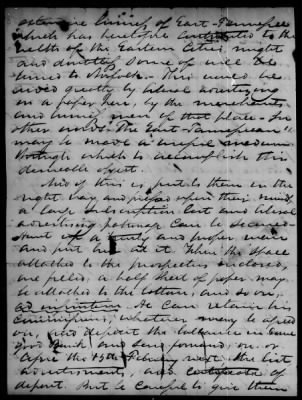 extensive business of East-Tennessee
which has heretofore contributed to the
wealth of the Eastern Cities, might
and doubtless some of will be
turned to Norfolk. This would be
aided greatly by liberal advertising
in a paper here, by the merchants
and business men of that place. In
other words "The East-Tennessean"
may be made a useful medium
through which to accomplish this
desirable object.
And if this is put to them in the
right way, and upon their minds
a large subscription list and liberal
advertising patronage can be secured.
and proper man
and put at it. When the space
attached to the prospectus enclosed,
are filled, a half sheet of paper may
be attached to the bottom, and so on,
ad infinitum. He can retain his
Commissions, whatever may be agreed
on, and deposit the balance in some
good Bank and send forward, on or
after the 15th February next, the list
advertisements, and certificate of
deposit. But be careful to give them